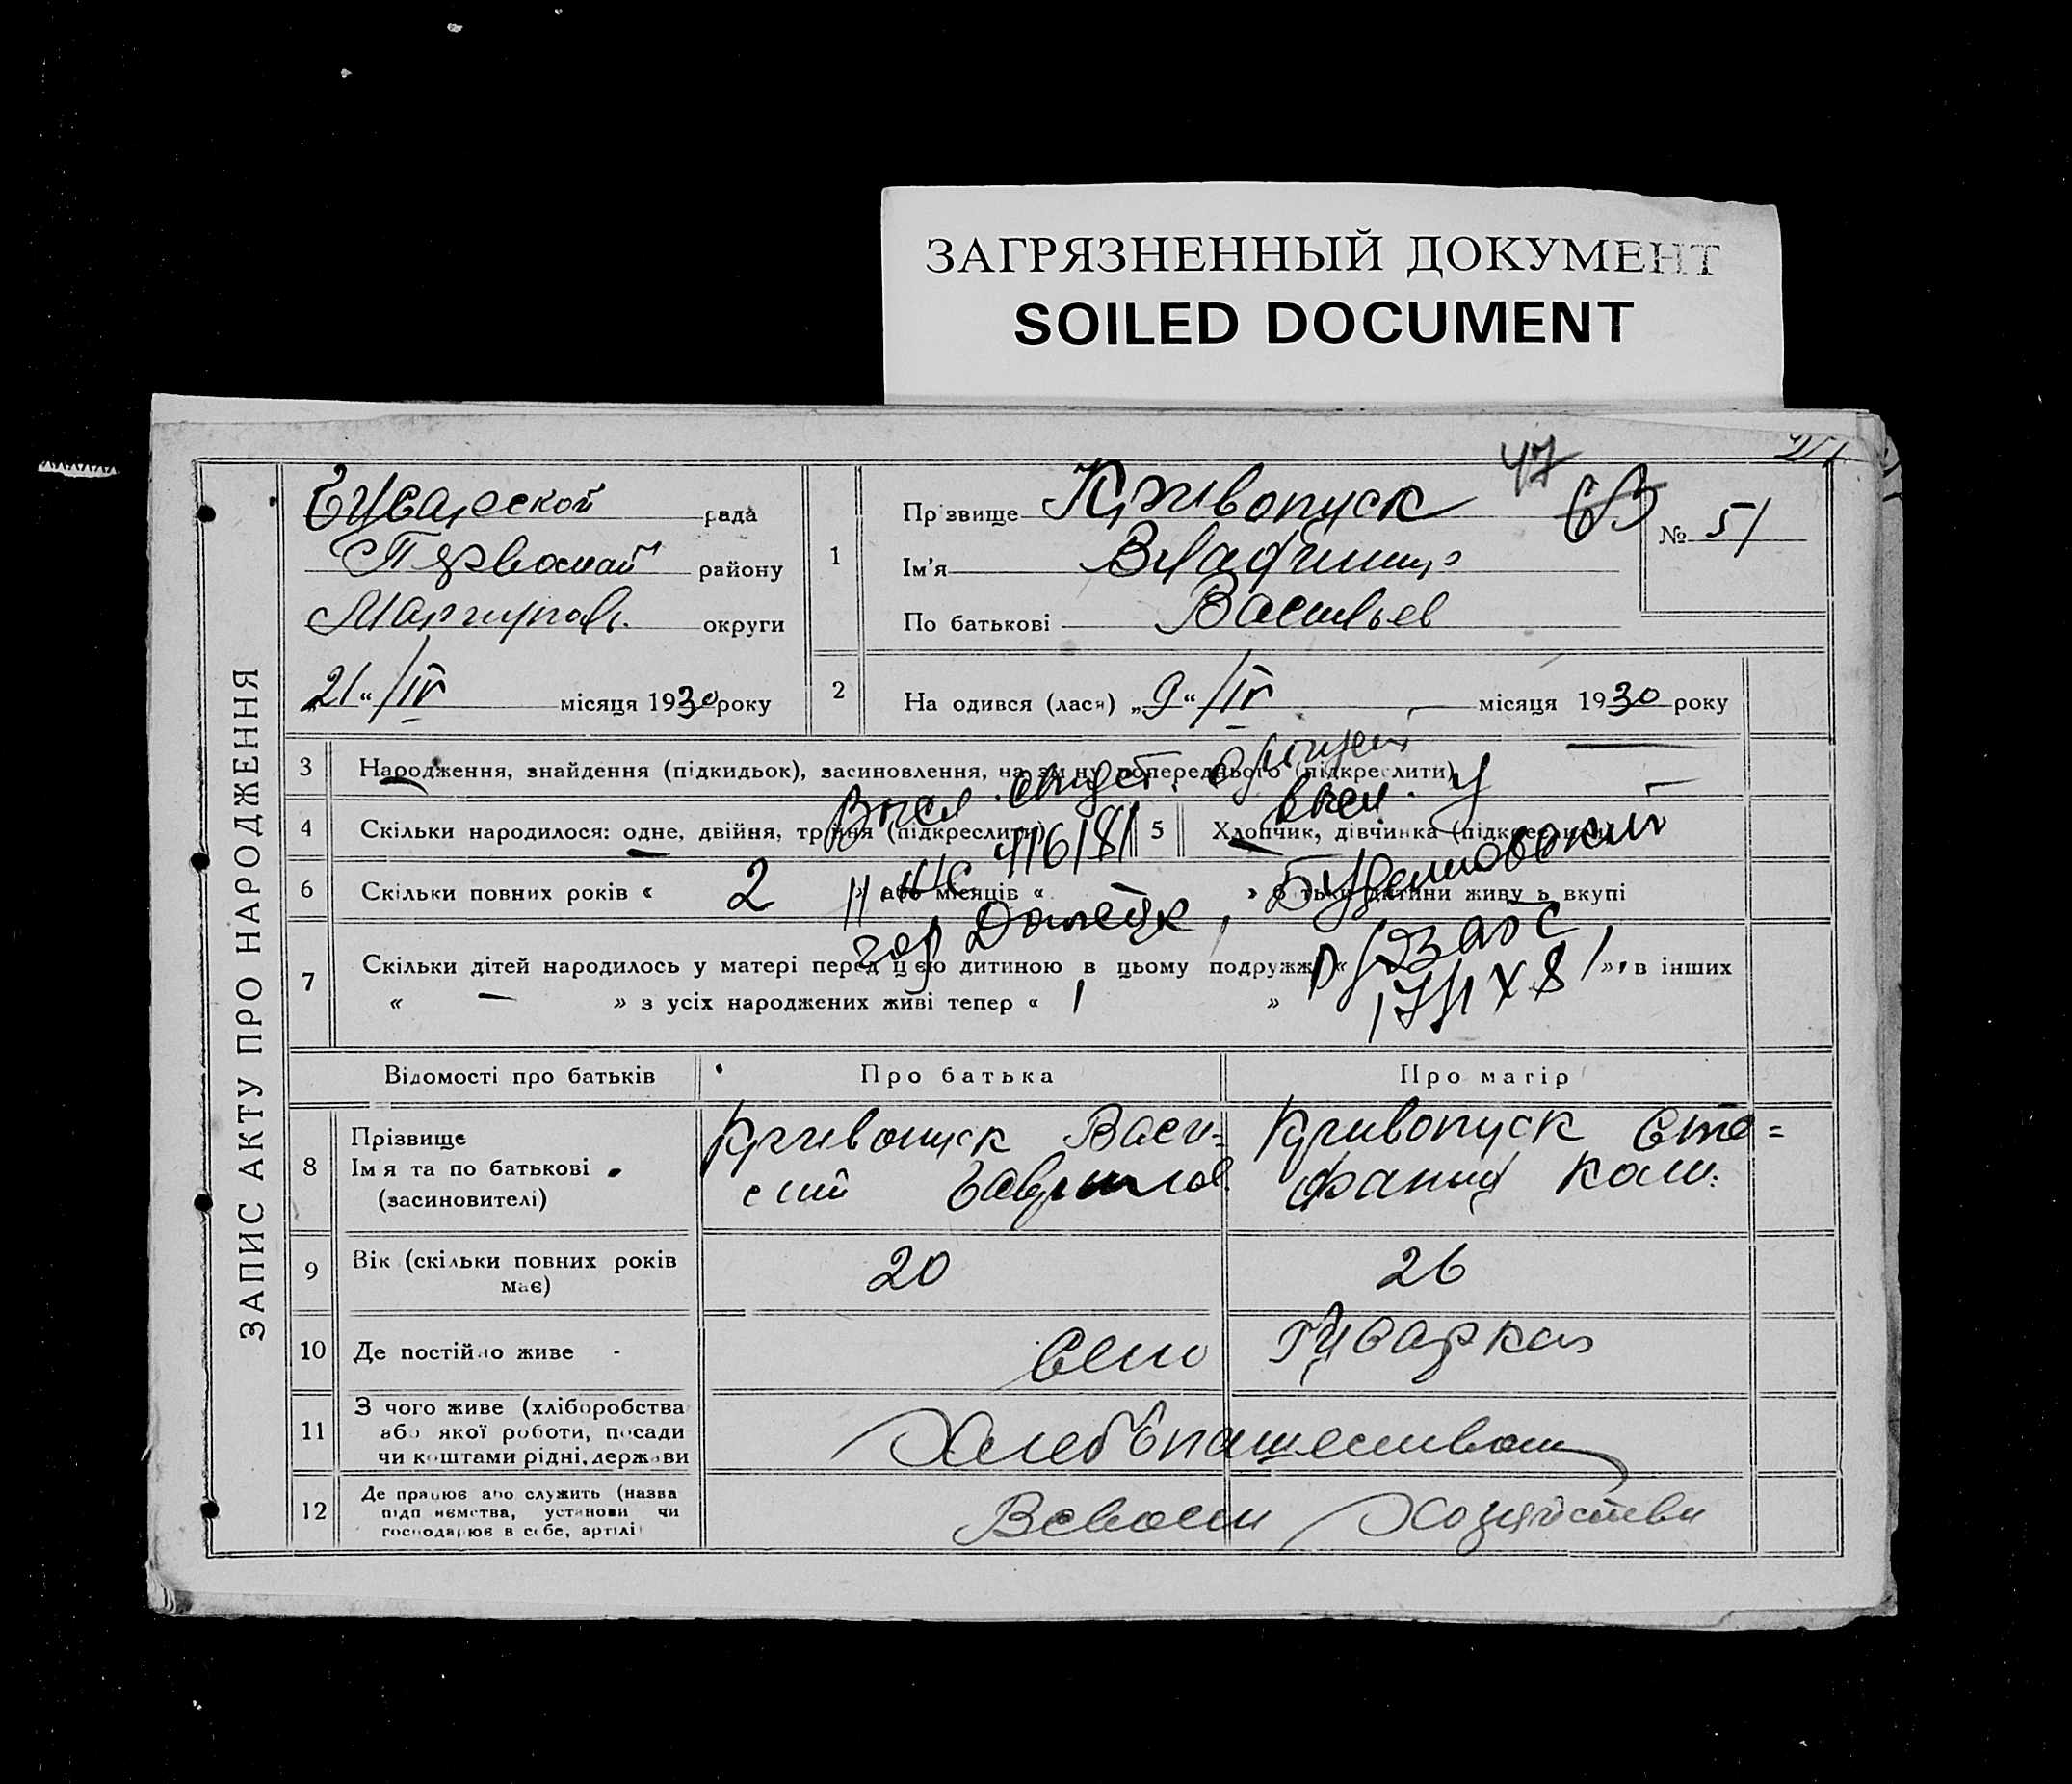 ЗАГРЯЗНЕННЫЙ ДОКУМЕНТ
SOILED DOCUMENT
47
ЗАПИС АКТУ ПРО НАРОДЖЕННЯ
Гусарской рада
Первомай району
Мариупольс. округи
„21“ /IV місяця 1930 року
1
Прізвище Кривопуск
Ім'я Владимир
По батькові Васильев
№ 51
2 На одився (лася) „9“ /IV місяця 1930 року
3 Народження, знайдення (підкидьок), засиновлення, на зміну попереднього (підкреслити)
4 Скільки народилося: одне, двійня, трійня (підкреслити)
5 Хлопчик, дівчинка (підкреслити)
6 Скільки повних років « 2 » або місяців « » батьки дитини живуть вкупі
7 Скільки дітей народилось у матері перед цією дитиною в цьому подружжі « », в інших
« — » з усіх народжених живі тепер « 1 »
гор Донецк, Буденновский
р ЗАГС
Відомості про батьків Про батька Про матір
8 Прізвище
Імя та по батькові
(засиновителі)
Кривопуск Васи=
силий Гаврилов.
Кривопуск Сте=
фания
9 Вік (скільки повних років
має)
20 26
10 Де постійно живе Село Гусарка
11 З чого живе (хліборобства
або якої роботи, посади
чи коштами рідні, держави
Хлебопашеством
12 Де працює або служить (назва
підприємства, установи чи
господарює в себе, артілі
В своем хозяйстви